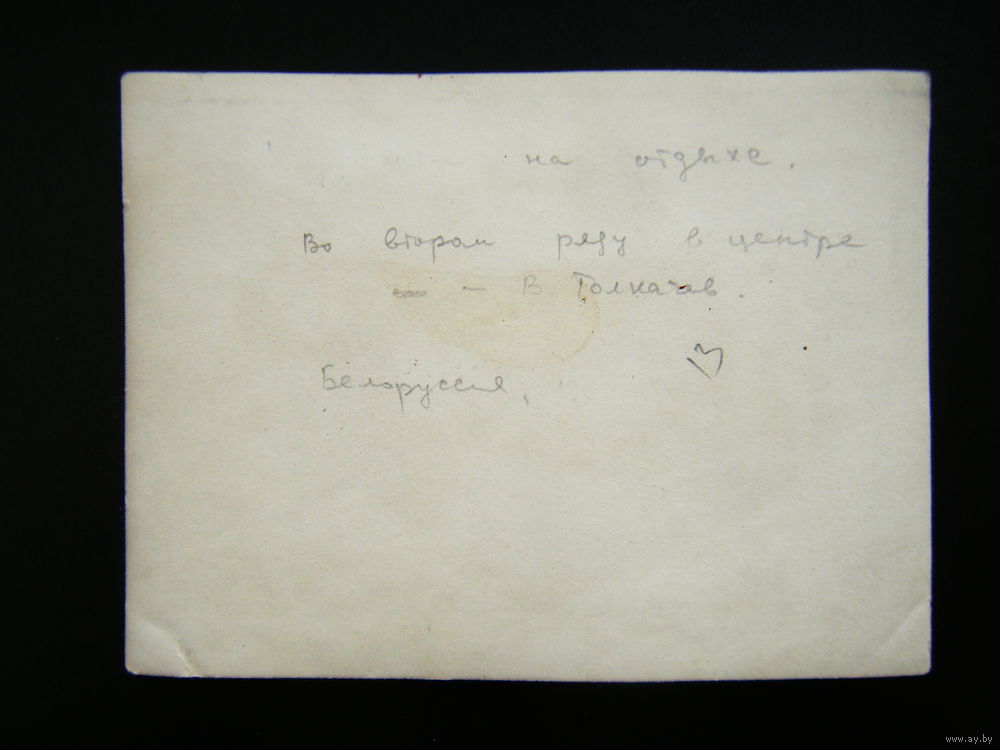 на отдыхе.
Во втором ряду в центре
— В. Толкачев.
13
Белоруссия,
www.ay.by